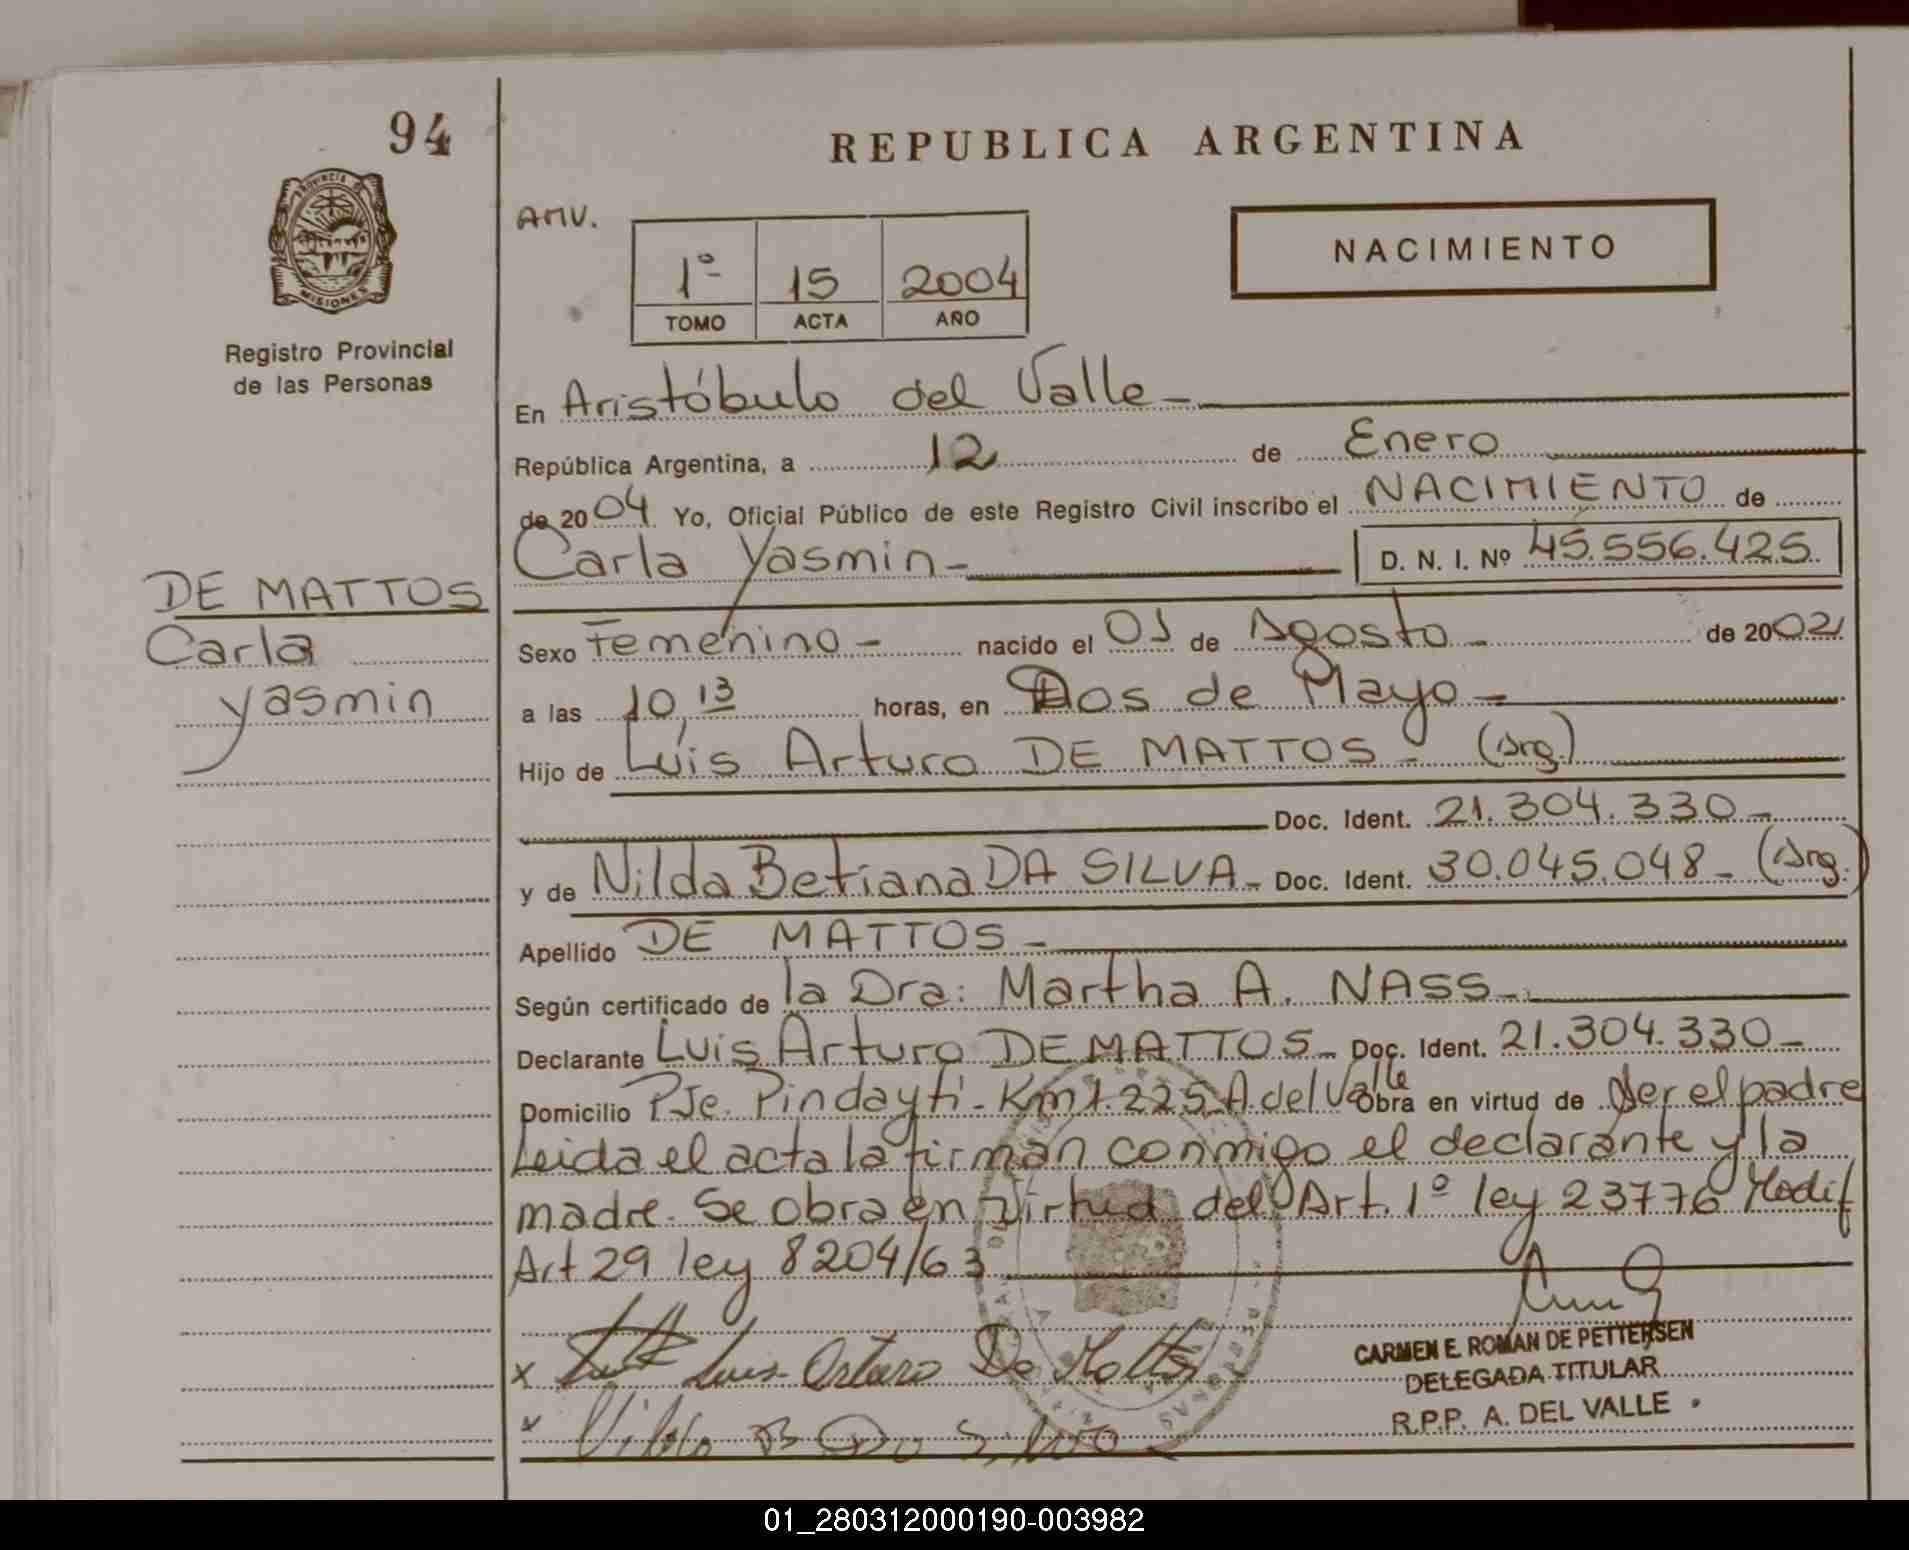 94
REPUBLICA ARGENTINA
PROVINCIA DE
MISIONES
Registro Provincial
de las Personas
AMV.
1º 15 2004
TOMO ACTA AÑO
NACIMIENTO
En Aristóbulo del Valle -
República Argentina, a 12 de Enero
de 2004 Yo, Oficial Público de este Registro Civil inscribo el NACIMIENTO de
Carla Yasmin - D. N. I. Nº 45.556.425.
DE MATTOS
Carla
Yasmin
Sexo Femenino - nacido el 01 de Agosto - de 2002
a las 10,13 horas, en Dos de Mayo -
Hijo de Luis Arturo DE MATTOS - (Arg.)
Doc. Ident. 21.304.330 -
y de Nilda Betiana DA SILVA - Doc. Ident. 30.045.048 - (Arg.)
Apellido DE MATTOS -
Según certificado de la Dra: Martha A. NASS -
Declarante Luis Arturo DE MATTOS - Doc. Ident. 21.304.330 -
Domicilio PJe. Pindayti - Km 1.225 A. del Valle Obra en virtud de Ser el padre
Leida el acta la firman conmigo el declarante y la
madre. Se obra en Virtud del Art. 1º ley 23776 Modif
Art 29 ley 8204/63
x Luis Arturo De Mattos
CARMEN E. ROMAN DE PETTERSEN
DELEGADA TITULAR
R.P.P. A. DEL VALLE
x Nilda B Da Silva
01_280312000190-003982